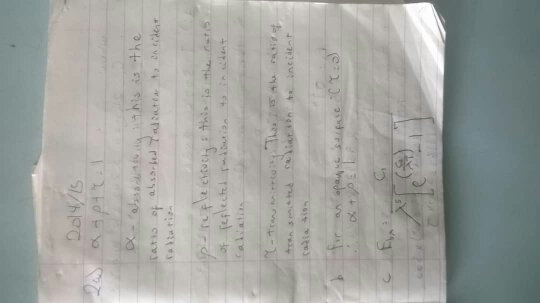 2014/15
2a) α+ρ+τ = 1
α - absorptivity : this is the
ratio of absorbed radiation to incident
radiation
ρ - reflectivity : this is the ratio
of reflected radiation to incident
radiation
τ - transmissivity. This is the ratio of
transmitted radiation to incident
radiation
b for an opaque surface (τ=0)
∴ α + ρ = 1
c E_bλ = C₁ / λ⁵[e^(C₂/λT) - 1]